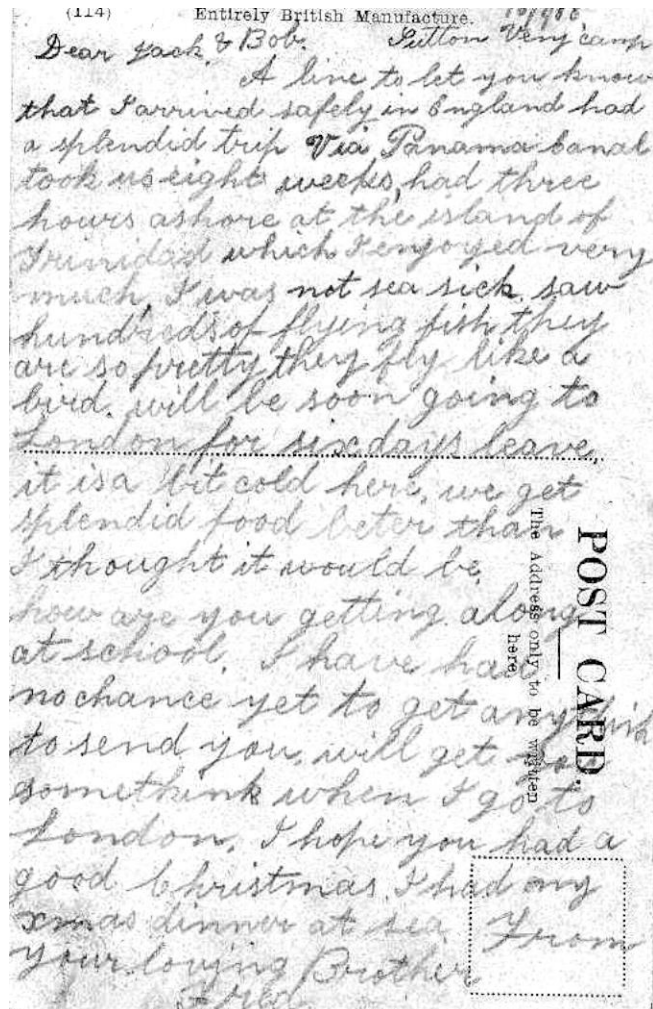 (114)
Entirely British Manufacture.
Dear Jack & Bob. Sutton Very camp
A line to let you know
that I arrived safely in England had
a splendid trip Via Panama Canal
took us eight weeks, had three
hours ashore at the island of
Trinidad which I enjoyed very
much, I was not sea sick saw
hundreds of flying fish they
are so pretty they fly like a
bird. will be soon going to
London for six days leave,
it is a bit cold here, we get
splendid food beter than
I thought it would be
how are you getting along
at school. I have had
no chance yet to get anythink
to send you, will get you
somethink when I go to
London. I hope you had a
good Christmas. I had my
xmas dinner at sea.
From
Your loving Brother
Fred.
POST CARD.
The Address only to be written
here